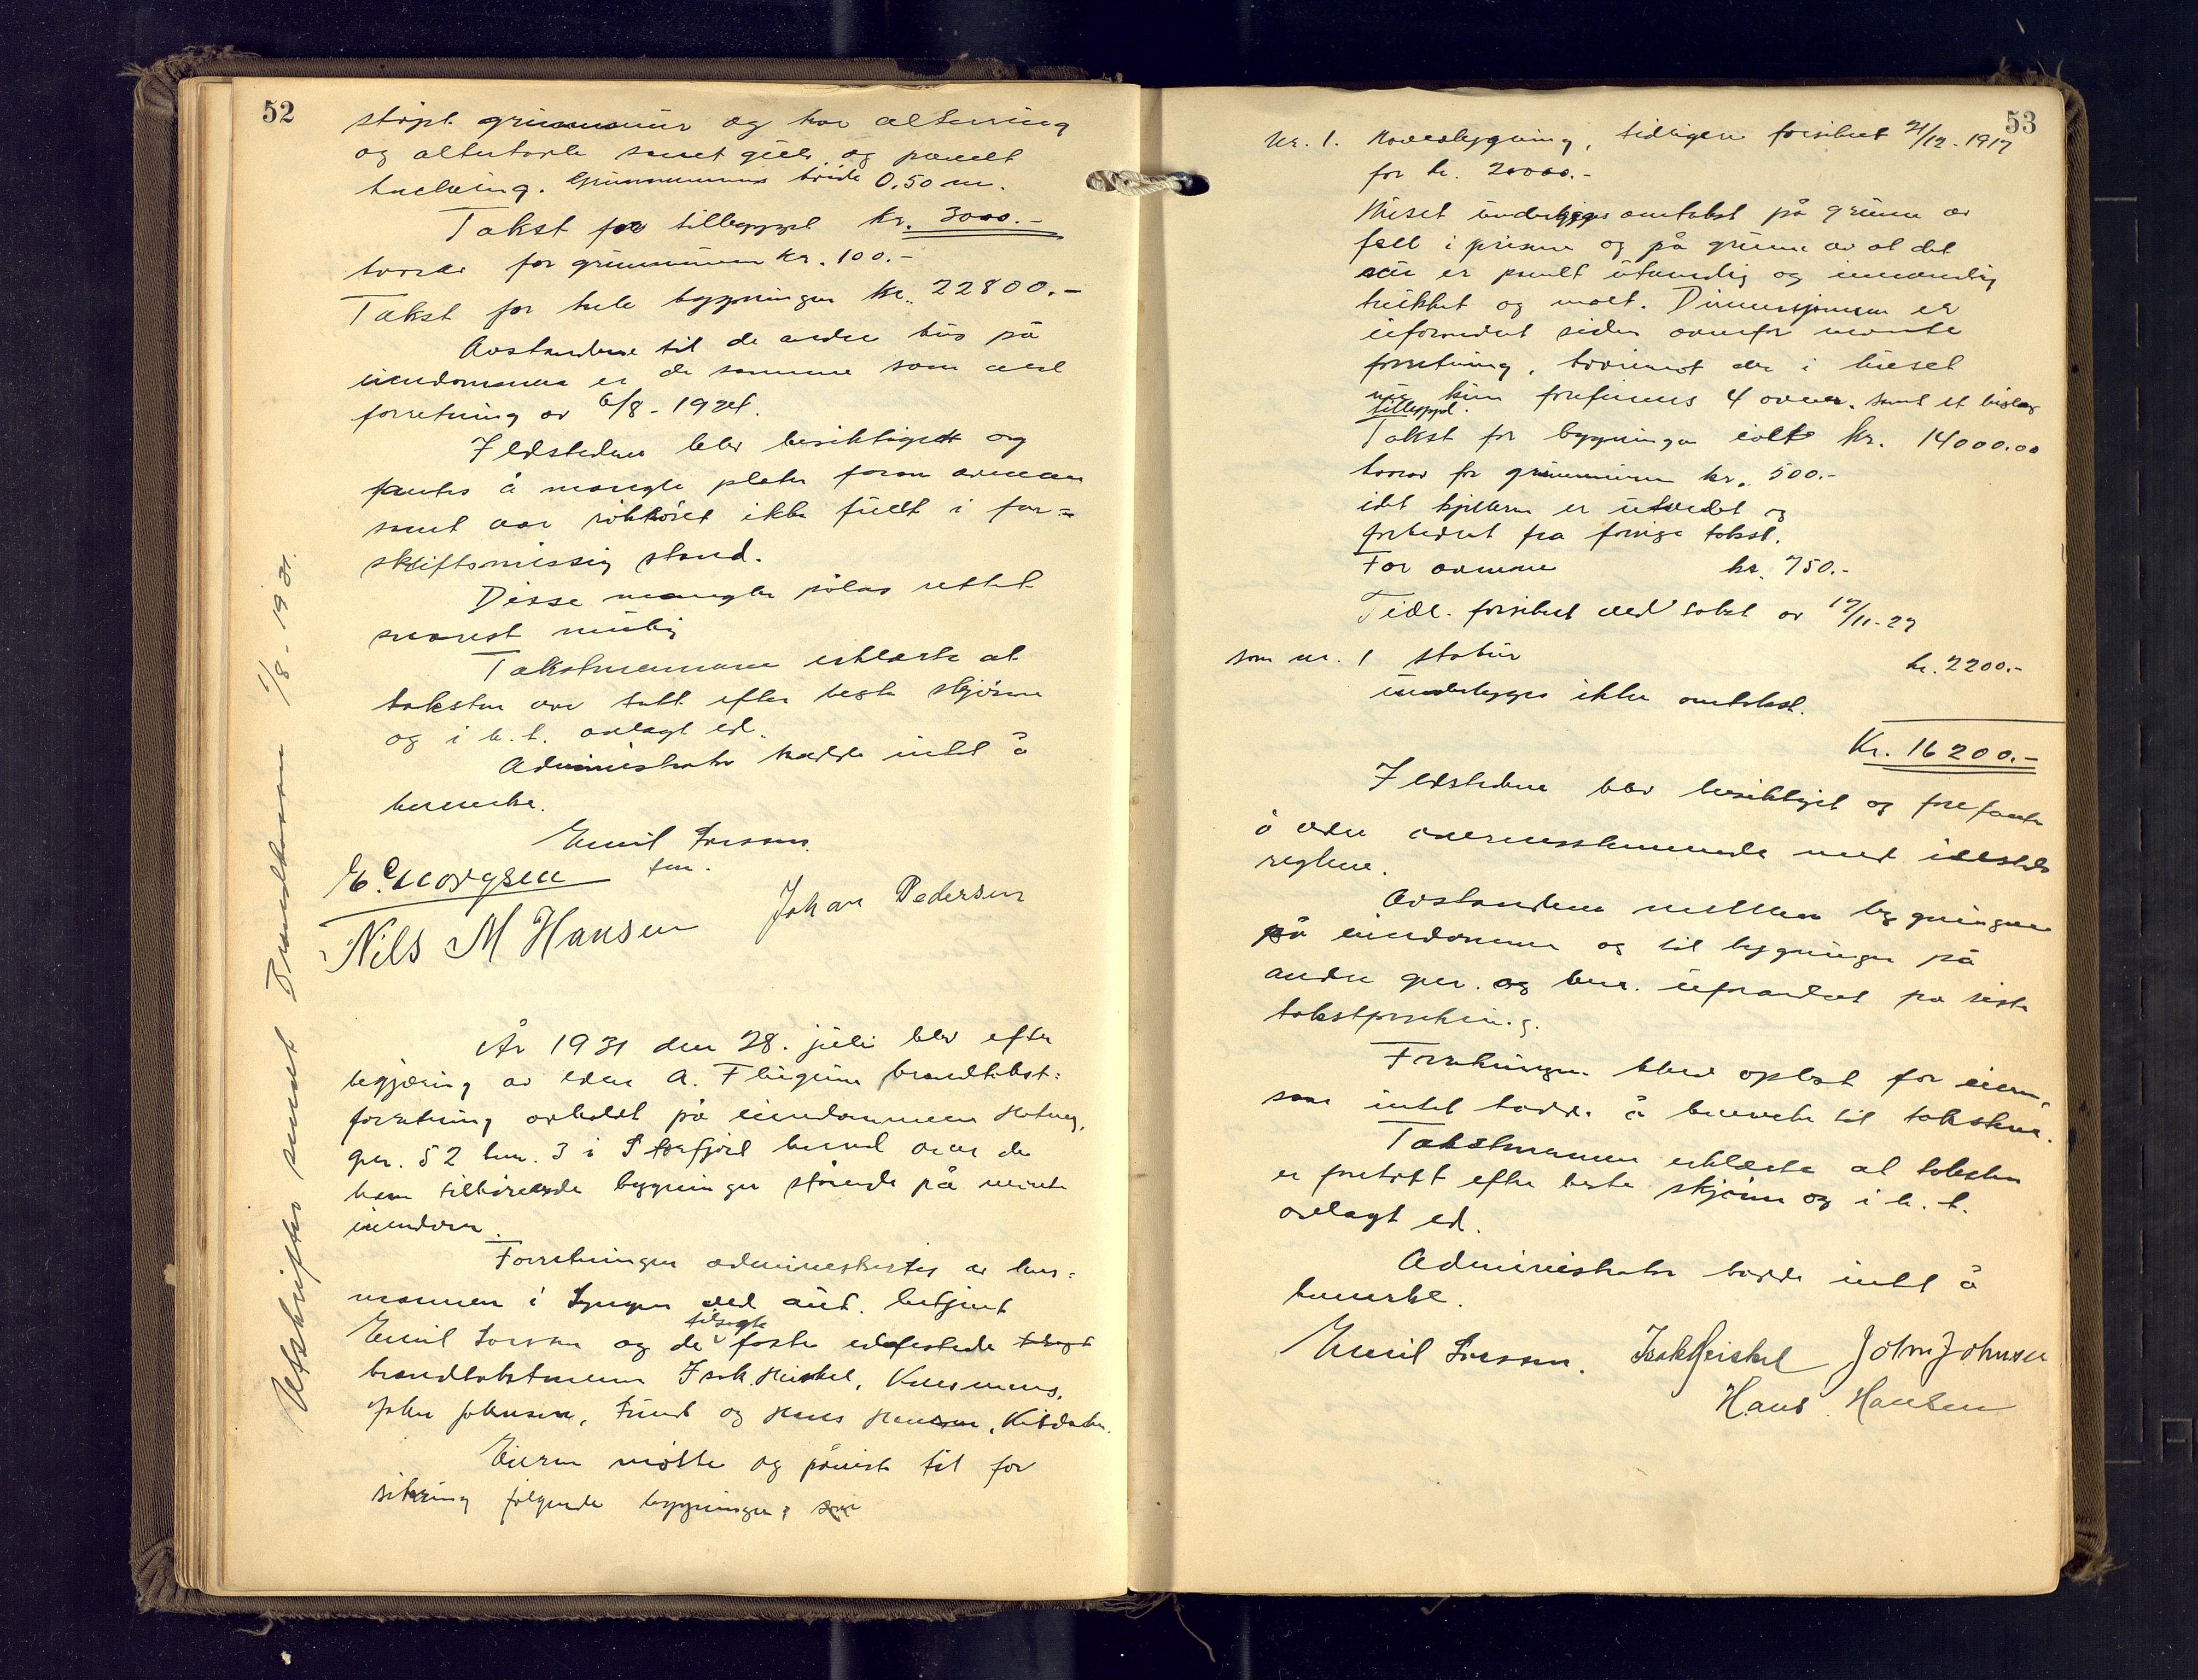 52
støpt grunnmur og har altanring
og samt gulv og panelt
Grunnmurens bride 0,50 m.
Takst for tilbygget kr. 3000.-
herav for grunnmuren kr. 100.-
Takst for hele bygningen kr. 22800.-
Avstandene til de andre hus på
eiendommen er de samme som ved
forretning av 6/8 - 1924.
Ildstedene blev besiktiget og
fantes å mangle plater foran ovnene
samt var røkrøret ikke fullt i for=
skriftsmessig stand.
Disse mangler søkes rettet
snarest mulig
Takstmennene erklærte at
taksten var tatt efter beste skjønn
og i h. t. avlagt ed.
Administrator hadde intet å
bemerke.
Emil Larssen
fm.
E. Georgsen
Johan Pedersen
Nils M Hansen
Utskrifter sendt Brandkassen 1/8 - 1931.
År 1931 den 28. juli blev efter
begjæring av eieren A. brandtakst=
forretning avholdt på eiendommen Hatteng,
gnr. 52 bnr. 3 i Storfjord herred over de
ham tilhørende bygninger stående på nevnte
eiendom.
Forretningen administrertes av lens=
mannen i Lyngen ved aut. betjent
Emil Larssen og de tilsagte faste edfestede tilsagt
brandtakstmenn Isak Heiskel,
John Johnsen, og Hans Hansen, Kitdalen.
Eieren møtte og påviste til for
sikring følgende bygninger; som
53
Nr. 1. Hovedbygning, tidligere forsikret 21/12 - 1917
for kr. 20000.-
Huset underlegges omtakst på grunn av
fall i prisene og på grunn av at det
nu er panelt utvendig og innvendig
trukket og malt. Dimensjonene er
uforandret siden ovenfor nevnte
forretning, hvorimot der i huset
nu kun forefinnes 4 ovner. samt et bislag
tilbygd.
Takst for bygningen ialt kr. 14000.00
herav for grunnmuren kr. 500.-
idet kjelleren er utvidet og
forbedret fra forrige takst.
For ovnene kr. 750.-
Tidl. forsikret ved takst av 17/11 - 27
som nr. 1 stabur kr. 2200.-
underlegges ikke omtakst.
Kr. 16200.-
Ildstedene blev besiktiget og forefantes
å være overensstemmende med ildsteds
reglene.
Avstandene mellem bygningene
på eiendommen og til bygninger på
andre gnr. og bnr. uforandret fra siste
takstforretning.
Forretningen blev oplest for eieren,
som intet hadde å bemerke til takstene.
Takstmennene erklærte at taksten
er foretatt efter beste skjønn og i h. t.
avlagt ed.
Administrator hadde intet å
bemerke.
Emil Larssen. Isak Heiskel John Johnsen
Hans Hansen